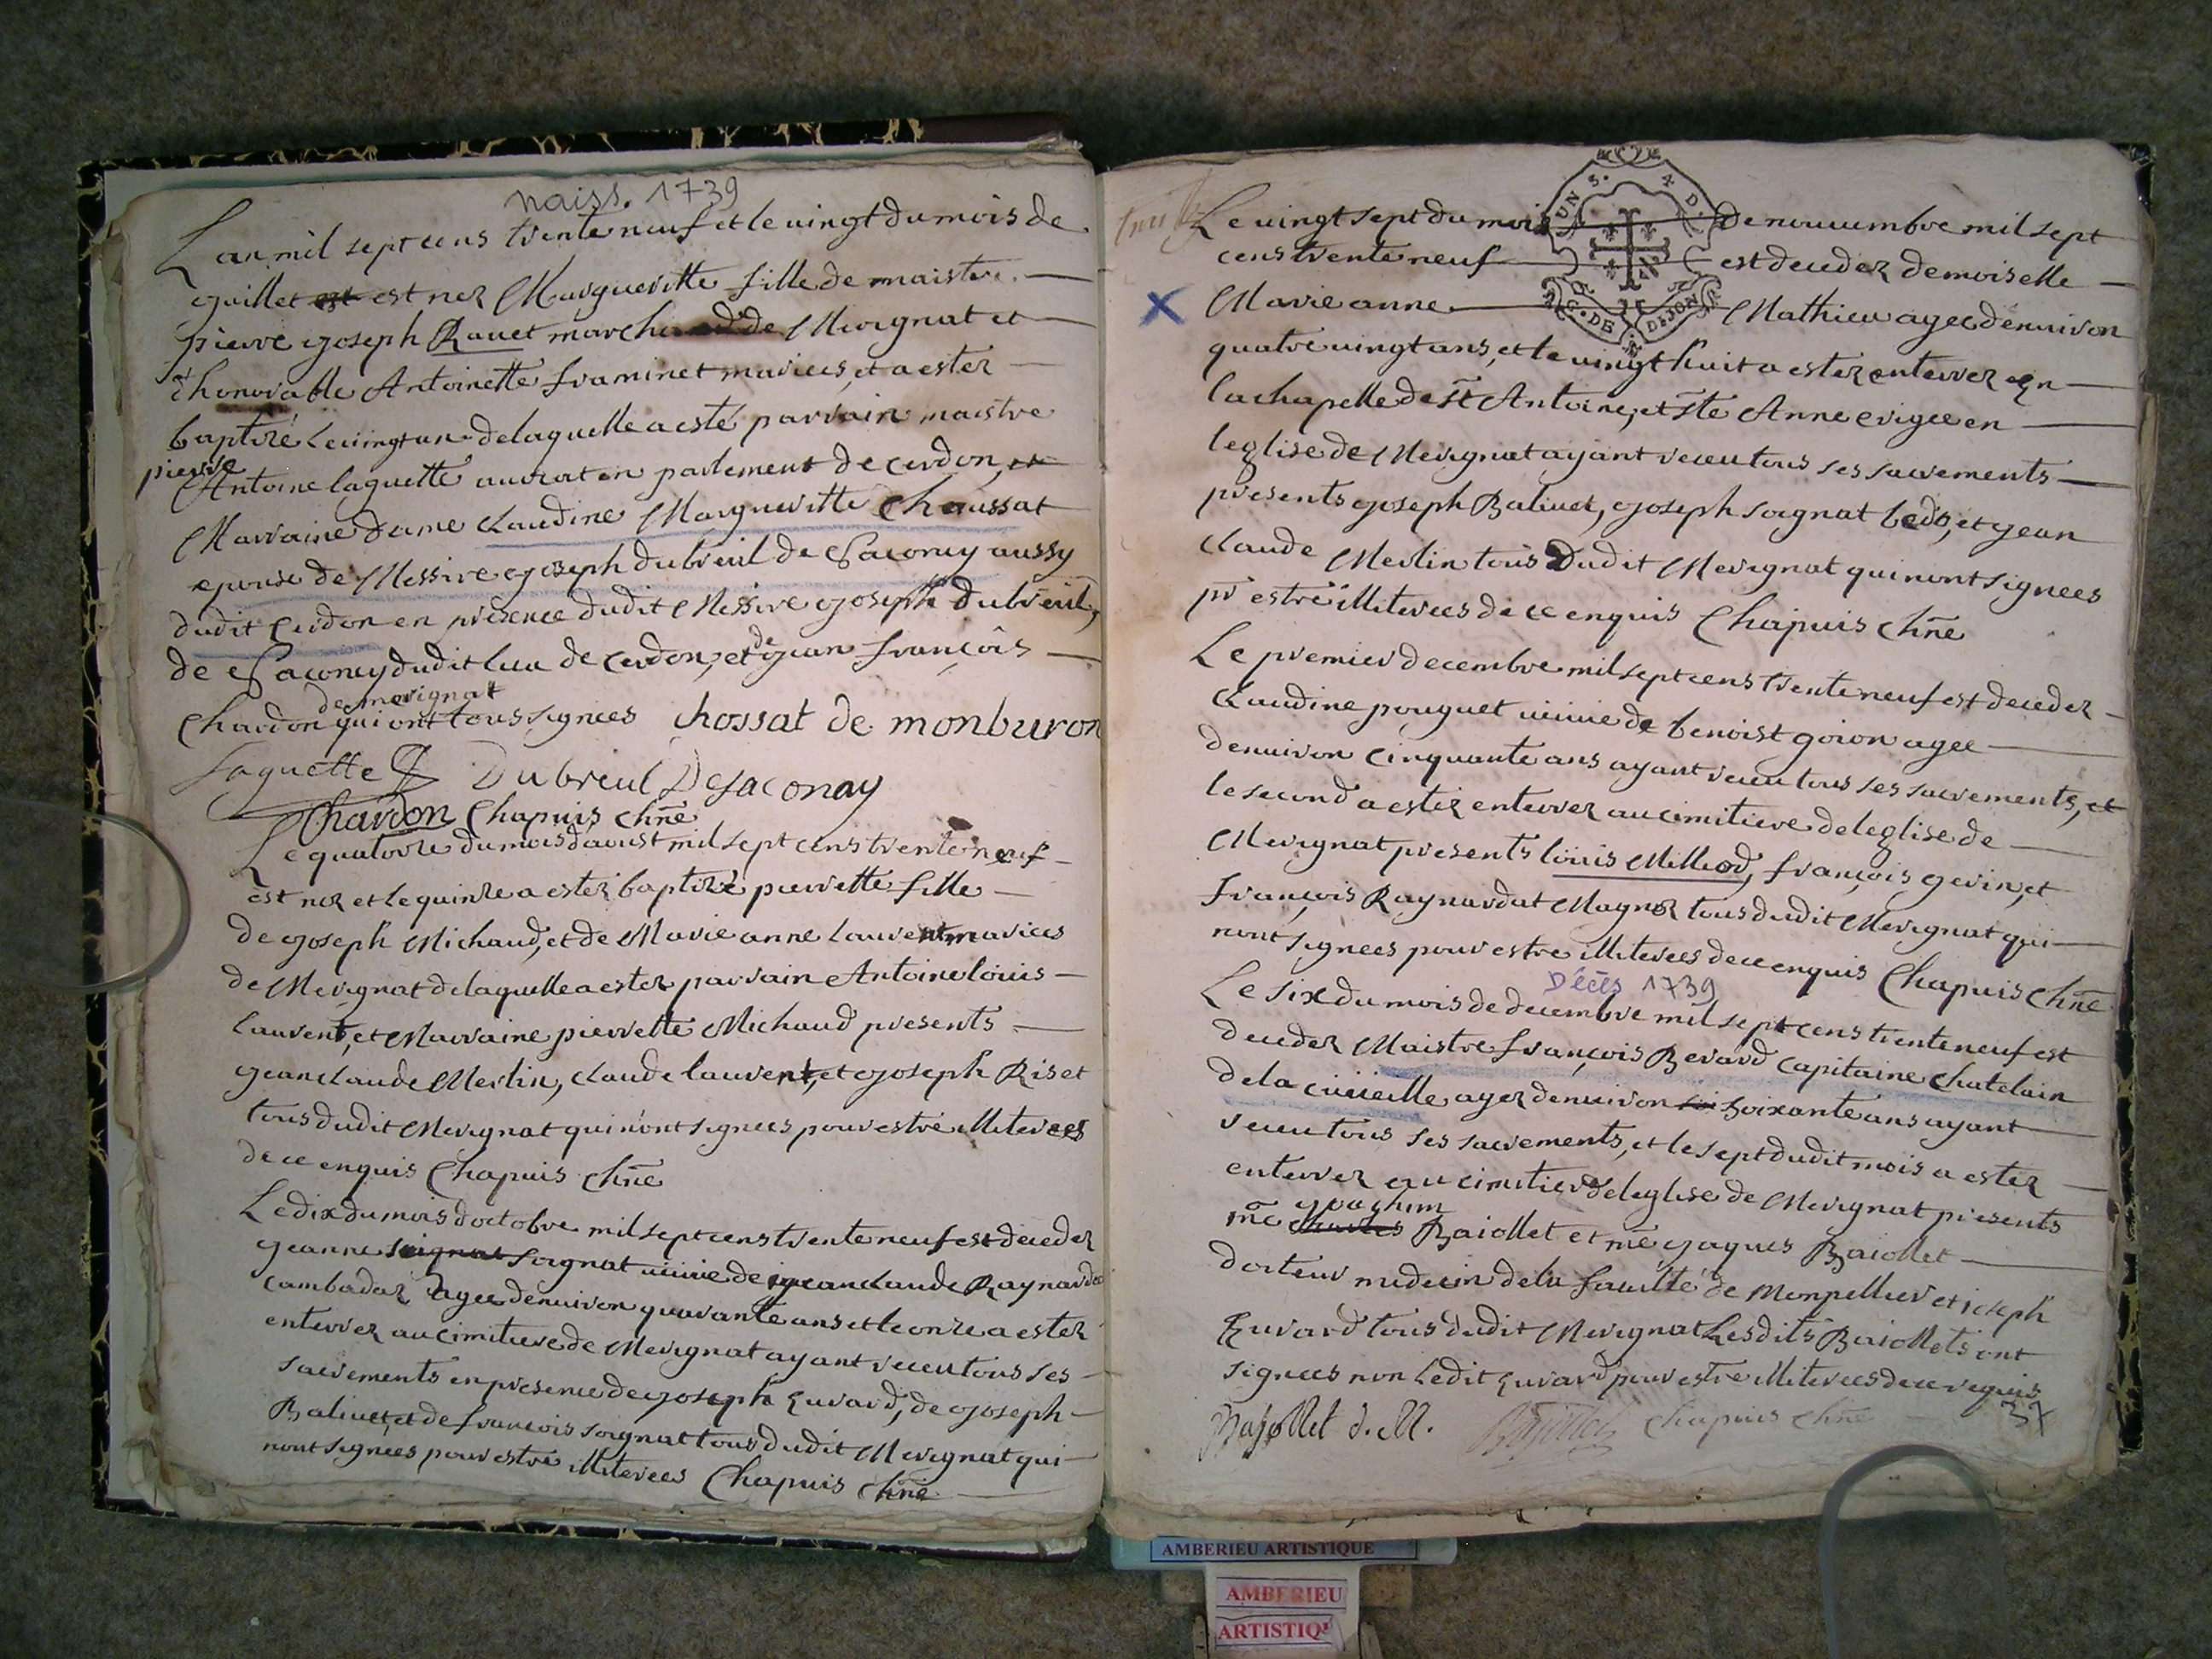 naiss. 1739
Lan mil sept cens trente neuf et le vingt du mois de
juillet est est nez Margueritte fille de maistre
pierre joseph Ravet marchand de Merignat et
d'honorable Antoinette framinet mariees, et a ester
baptizé le vingt un delaquelle a esté parrain maistre
pierre
Antoine laguette avocat en parlement de cerdon, et
Marraine dame claudine Margueritte Chaussat
epouse de Messire joseph dubreuil de Saconey aussy
dudit cerdon en présence dudit Messire joseph dubreuil,
de Saconey dudit lieu de cerdon, et de jean françois
de merignat
Chardon qui ont tous signees chossat de monburon
Laguette Dubreul Desaconay
Chardon Chapuis chñe
Le quatorze du mois daoust mil sept cens trente neuf
est nez et le quinze a ester baptizé pierrette fille
de joseph Michaud, et de Marie anne laurent mariees
de Merignat delaquelle a ester parrain Antoine louis
laurent, et Marraine pierrette Michaud presents
jean claude Merlin, claude laurent, et joseph Riset
tous dudit Merignat qui n'ont signees pour estre illiterees
de ce enquis Chapuis chñe
Le dix du mois doctobre mil sept cens trente neuf est deceder
jeanne soignat soignat veuve de jean claude Raynardat
cambadoz agee denviron quarante ans et le onze a ester
enterrer au cimitiere de Merignat ayant receu tous ses
sacrements en presence de joseph Euvard, de joseph
Balivet, et de françois soignat tous dudit Merignat qui
nont signees pour estre illiterees Chapuis chñe
Le vingt sept du mois de novembre mil sept
cens trente neuf est deceder demoiselle
X Marie anne Mathieu agee denviron
quatre vingt ans, et le vingt huit a ester enterrer en
la chapelle de st Antoine, et ste Anne erigee en
leglise de Merignat ayant receu tous ses sacrements
presents joseph Balivet, joseph soignat bedo, et jean
claude Merlin tous dudit Merignat qui nont signees
pr estre illiterees de ce enquis Chapuis chñe
Le premier decembre mil sept cens trente neuf est deceder
claudine pouguet veuve de benoist goion agee
denviron cinquante ans ayant receu tous ses sacrements, et
le second a ester enterrer au cimitiere de leglise de
Merignat presents louis Milliod, françois gerin, et
françois Raynardat Magnez tous dudit Merignat qui
nont signees pour estre illiterees de ce enquis Chapuis chñe
Décès 1739
Le six du mois de decembre mil sept cens trente neuf est
deceder Maistre françois Berard capitaine chatelain
de la cueille agez denviron soi soixante ans ayant
receu tous ses sacrements, et le sept dudit mois a ester
enterrer au cimitiere de leglise de Merignat presents
joachim
me charles Baiollet et me jaques Baiollet
docteur medecin de la faculté de Monpellier et joseph
Euvard tous dudit Merignat Lesdits Baiollets ont
signees non Ledit Euvard pour estre illiterees de ce requis
Bajollet d. M. Bajollet Chapuis chñe
37
UN S. 4 D.
G. DE DIJON
AMBERIEU ARTISTIQUE
AMBERIEU
ARTISTIQ